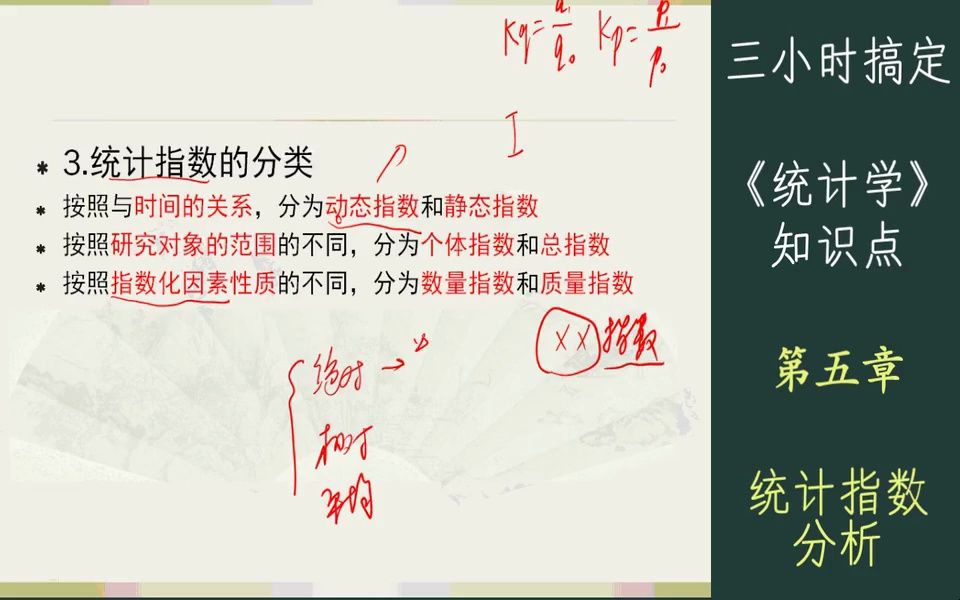 Kq=q₁/q₀ Kp=p₁/p₀
I
3.统计指数的分类
按照与时间的关系，分为动态指数和静态指数
按照研究对象的范围的不同，分为个体指数和总指数
按照指数化因素性质的不同，分为数量指数和质量指数
XX指数
绝对→
相对
平均
三小时搞定
《统计学》
知识点
第五章
统计指数
分析